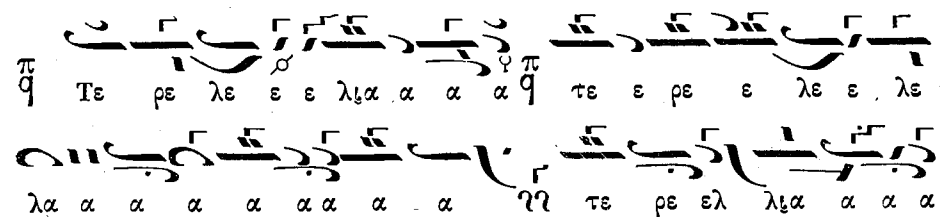 π
q Τε ρε λε ε ε λῃα α α α π
q τε ε ρε ε λε ε λε
λα α α α α αα α α τε ρε ελ λῃα α α α